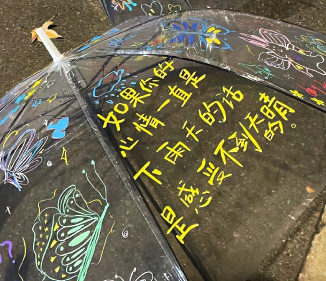 如果你的
心情一直是
下雨天的话
是感受不到天晴
的。